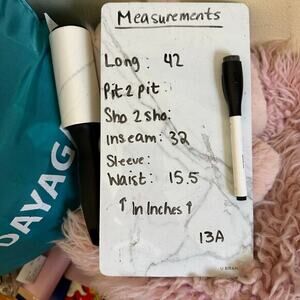 Measurements
Long: 42
Pit 2 pit:
Sho 2 sho:
Inseam: 32
Sleeve:
Waist: 15.5
↑ In Inches ↑
13A
U BRAN
DAYAG